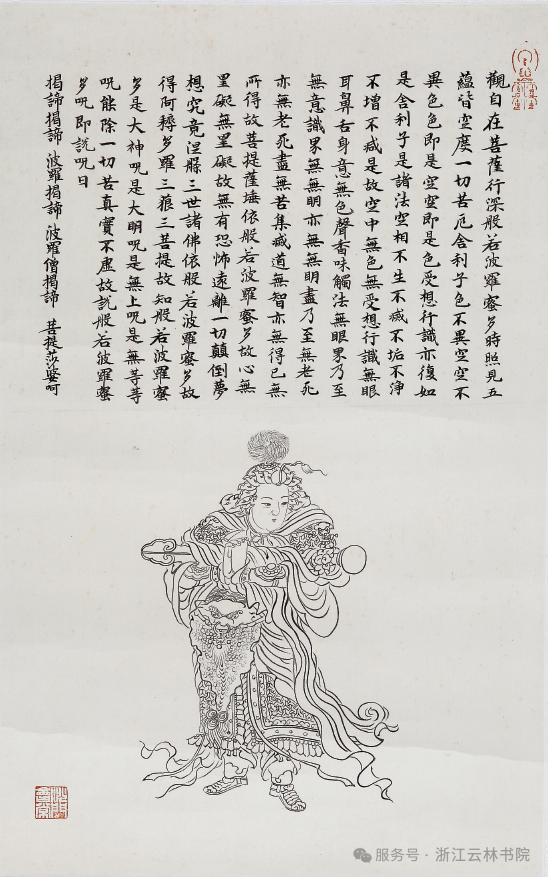 觀自在菩薩行深般若波羅蜜多時照見五
蘊皆空度一切苦厄舍利子色不異空空不
異色色即是空空即是色受想行識亦復如
是舍利子是諸法空相不生不滅不垢不淨
不增不減是故空中無色無受想行識無眼
耳鼻舌身意無色聲香味觸法無眼界乃至
無意識界無無明亦無無明盡乃至無老死
亦無老死盡無苦集滅道無智亦無得已無
所得故菩提薩埵依般若波羅蜜多故心無
罣礙無罣礙故無有恐怖遠離一切顛倒夢
想究竟涅槃三世諸佛依般若波羅蜜多故
得阿耨多羅三藐三菩提故知般若波羅蜜
多是大神呪是大明呪是無上呪是無等等
呪能除一切苦真實不虛故說般若波羅蜜
多呪即說呪曰
揭諦揭諦 波羅揭諦 波羅僧揭諦 菩提莎婆呵
服务号 · 浙江云林书院